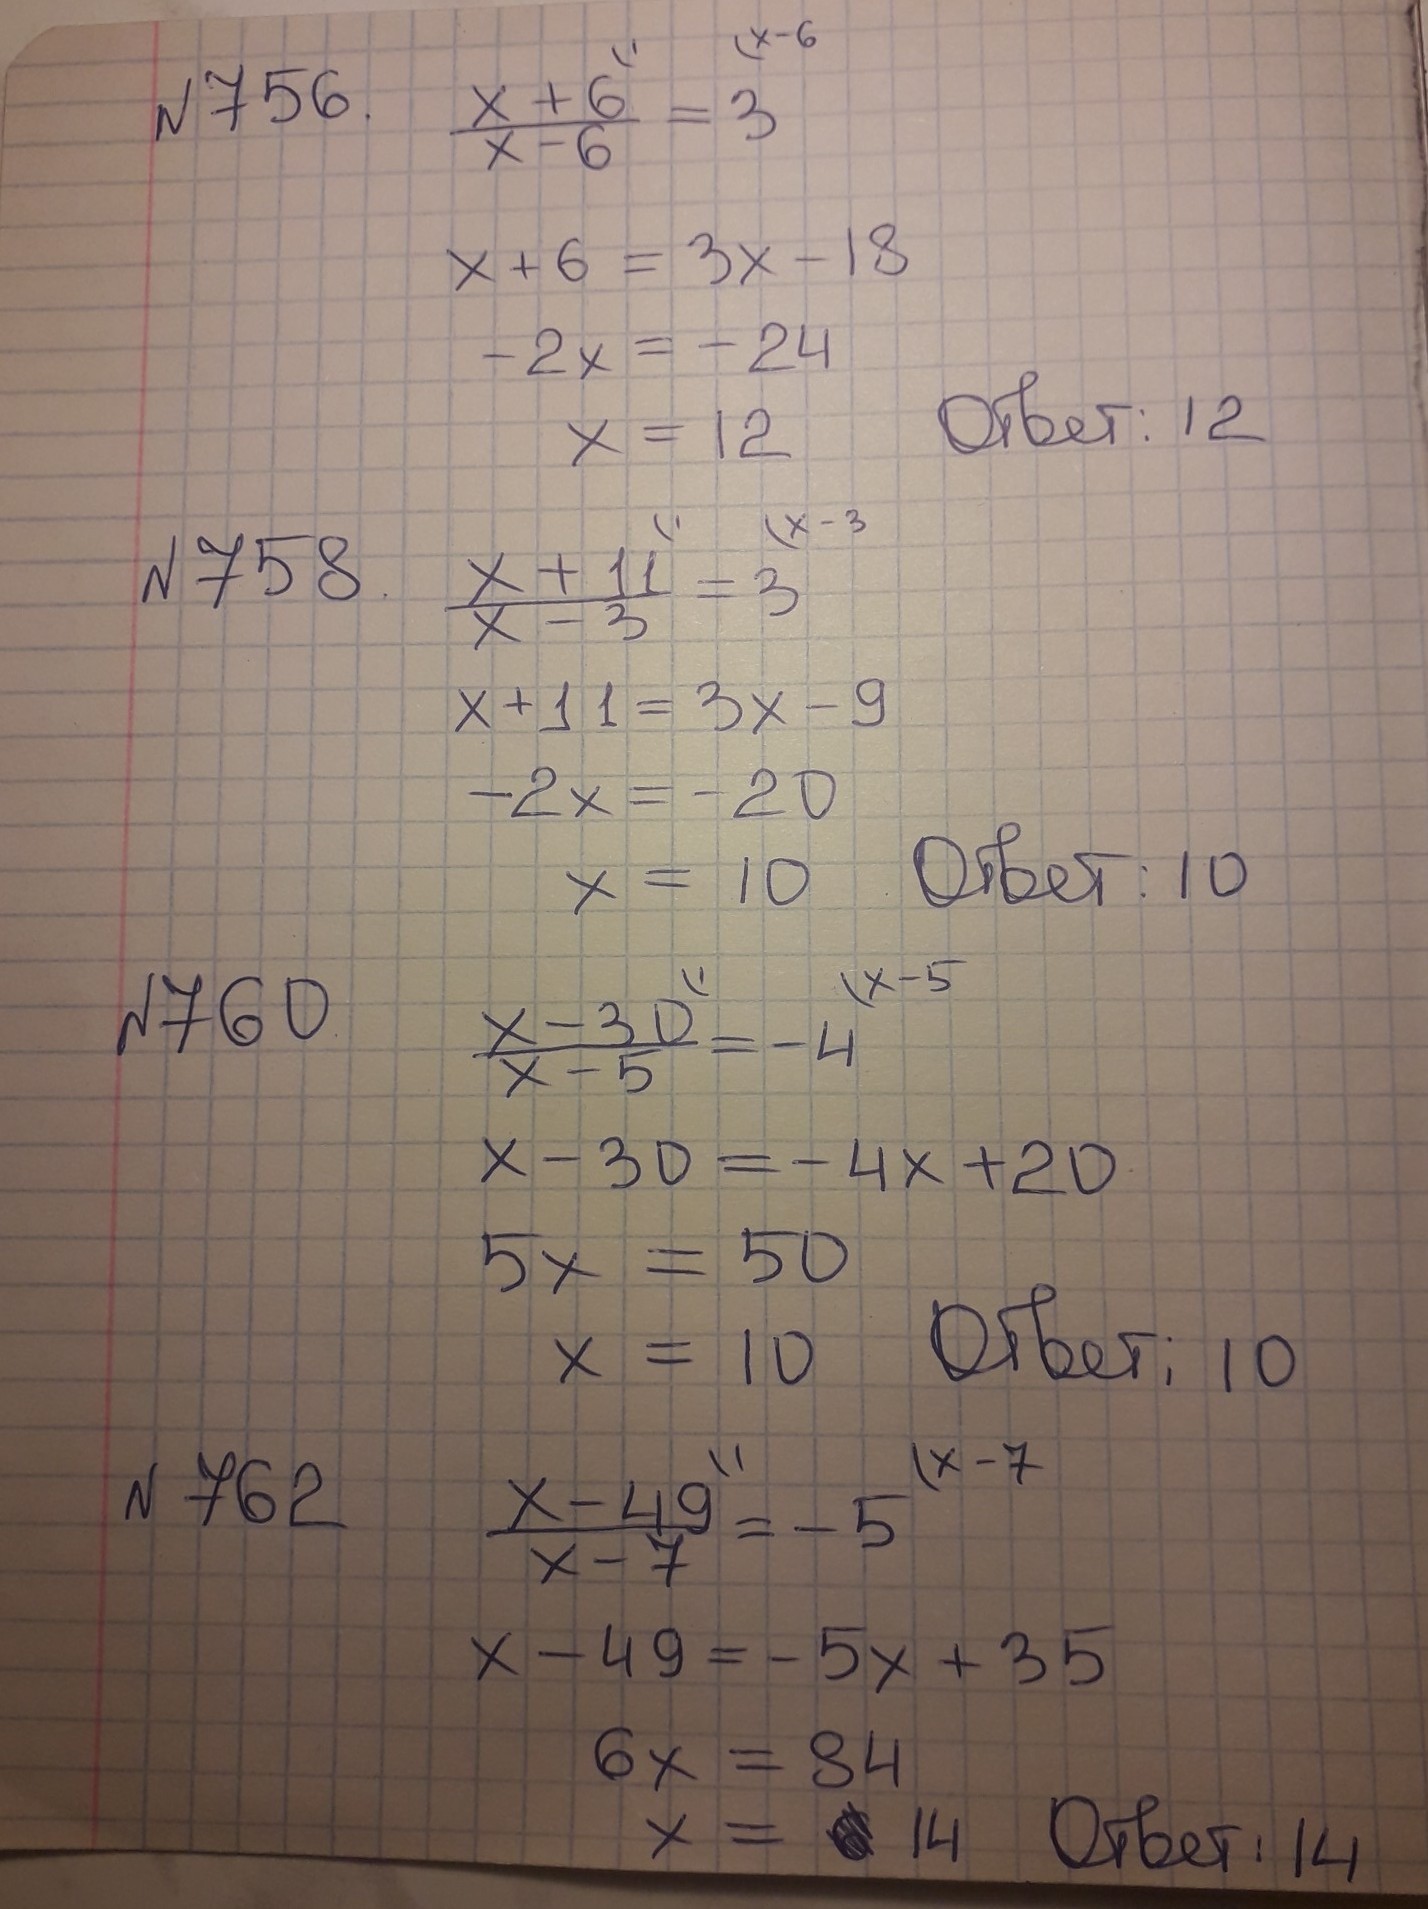 №756. (x+6)/(x−6) \1 = 3 \x−6
x+6 = 3x−18
−2x = −24
x = 12 Ответ: 12
№758. (x+11)/(x−3) \1 = 3 \x−3
x+11 = 3x−9
−2x = −20
x = 10 Ответ: 10
№760 (x−30)/(x−5) \1 = −4 \x−5
x−30 = −4x+20
5x = 50
x = 10 Ответ: 10
№762 (x−49)/(x−7) \1 = −5 \x−7
x−49 = −5x+35
6x = 84
x = 14 Ответ: 14